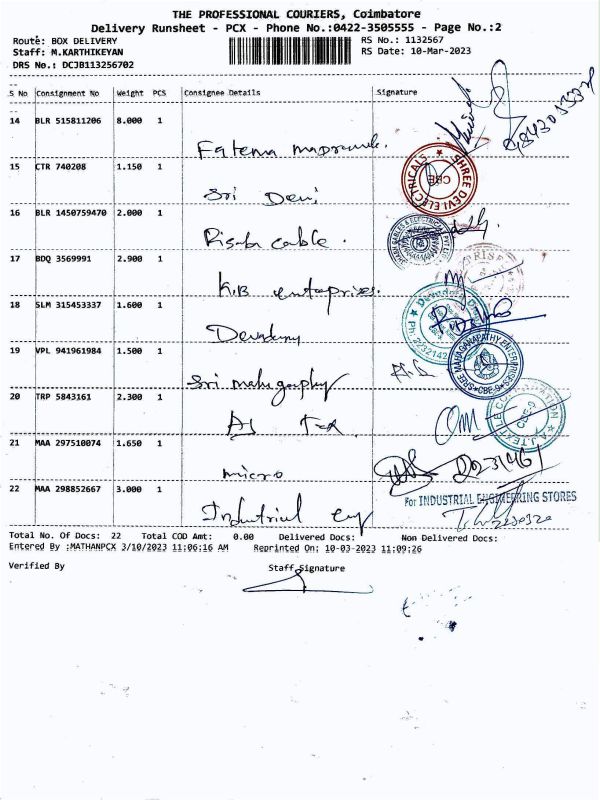 THE PROFESSIONAL COURIERS, Coimbatore
Delivery Runsheet - PCX - Phone No.:0422-3505555 - Page No.:2
Route: BOX DELIVERY
RS No.: 1132567
Staff: M.KARTHIKEYAN
RS Date: 10-Mar-2023
DRS No.: DCJB113256702
S No Consignment No Weight PCS Consignee Details Signature
14 BLR 515811206 8.000 1
Fatema
15 CTR 740208 1.150 1
SHREE DEVI ELECTRICALS
CBE
Sri Devi
16 BLR 1450759470 2.000 1
Risaba cable.
17 BDQ 3569991 2.900 1
K.B enterprises.
18 SLM 315453337 1.600 1
19 VPL 941961984 1.500 1
SHREE MAHAGANAPATHY ENTERPRISES
CBE-9
Sri
20 TRP 5843161 2.300 1
A.J.TEXTILE CORPORATION
CBE-9
AJ Tex
21 MAA 297510074 1.650 1
micro
22 MAA 298852667 3.000 1
For INDUSTRIAL ENGINEERING STORES
Industrial
Total No. Of Docs: 22 Total COD Amt: 0.00 Delivered Docs: Non Delivered Docs:
Entered By :MATHANPCX 3/10/2023 11:06:16 AM Reprinted On: 10-03-2023 11:09:26
Verified By Staff Signature